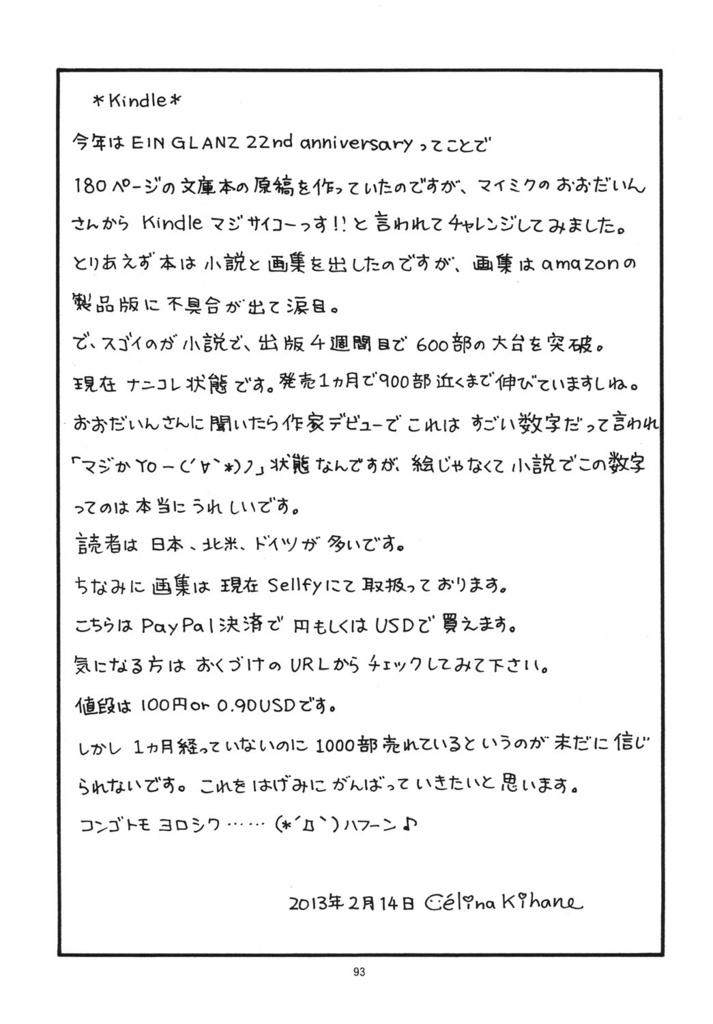 *Kindle*
今年は EIN GLANZ 22nd anniversaryってことで
180ページの文庫本の原稿を作っていたのですが、マイミクのおおだいん
さんから Kindle マジサイコーっす!!と言われてチャレンジしてみました。
とりあえず本は小説と画集を出したのですが、画集はamazonの
製品版に不具合が出て涙目。
で、スゴイのが小説で、出版4週間目で600部の大台を突破。
現在ナニコレ状態です。発売1カ月で900部近くまで伸びていますしね。
おおだいんさんに聞いたら作家デビューでこれはすごい数字だって言われ
「マジかYO-(´∀`*)ﾉ」状態なんですが、絵じゃなくて小説でこの数字
ってのは本当にうれしいです。
読者は日本、北米、ドイツが多いです。
ちなみに画集は現在Sellfyにて取扱っております。
こちらはPayPal決済で円もしくはUSDで買えます。
気になる方はおくづけのURLからチェックしてみて下さい。
値段は100円or 0.90USDです。
しかし1カ月経っていないのに1000部売れているというのが未だに信じ
られないです。これをはげみにがんばっていきたいと思います。
コンゴトモヨロシク……(*´Д`)ハフーン♪
2013年2月14日 Célina Kihane
93